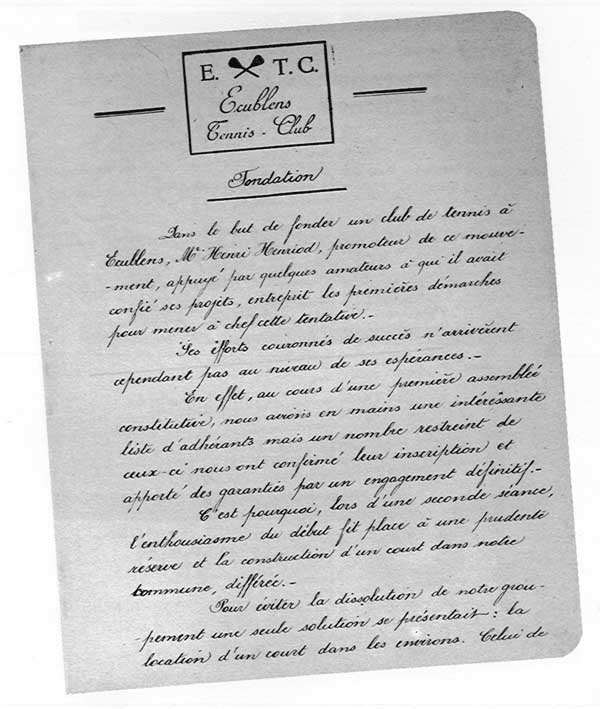 E. T. C.
Ecublens
Tennis - Club
Fondation
Dans le but de fonder un club de tennis à
Ecublens, Mr Henri Henriod, promoteur de ce mouve-
-ment, appuyé par quelques amateurs à qui il avait
confié ses projets, entreprit les premières démarches
pour mener à chef cette tentative.-
Ses éfforts couronnés de succès n'arrivèrent
cependant pas au niveau de ses espérances.-
En effet, au cours d'une première assemblée
constitutive, nous avions en mains une intéréssante
liste d'adhérants mais un nombre restreint de
ceux-ci nous ont confirmé leur inscription et
apporté des garanties par un engagement définitif.-
C'est pourquoi, lors d'une seconde séance,
l'enthousiasme du début fit place à une prudente
réserve et la construction d'un court dans notre
commune, différée.-
Pour éviter la dissolution de notre grou-
-pement une seule solution se présentait : la
location d'un court dans les environs. Celui de